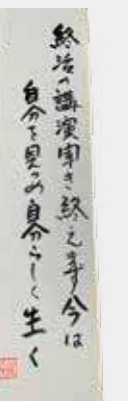 終活の講演聞き終え
自分を見つめ自分らしく生く